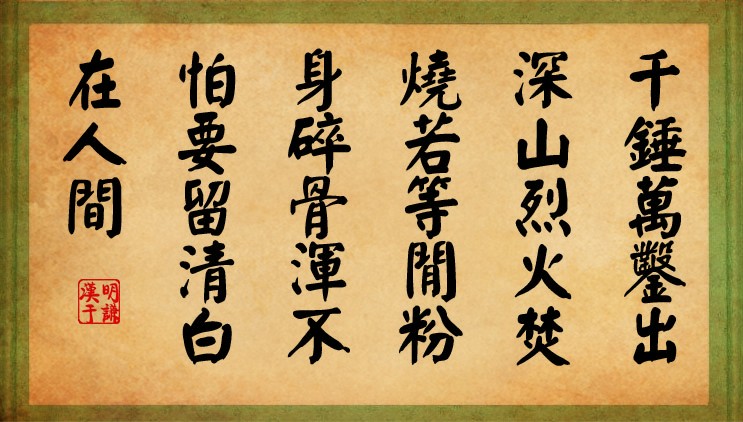 千錘萬鑿出
深山烈火焚
燒若等閒粉
身碎骨渾不
怕要留清白
在人間
明謙
漢于